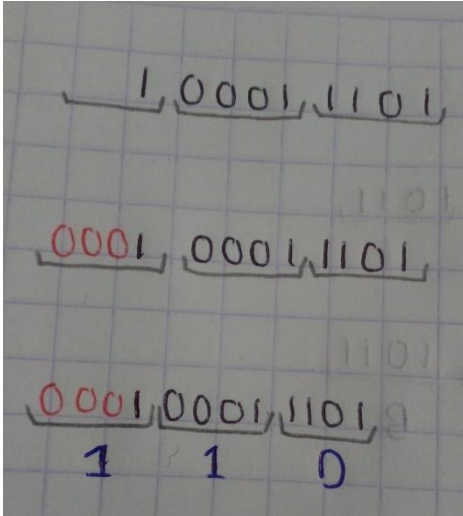 1 0001 1101
0001 0001 1101
0001 0001 1101
1 1 D